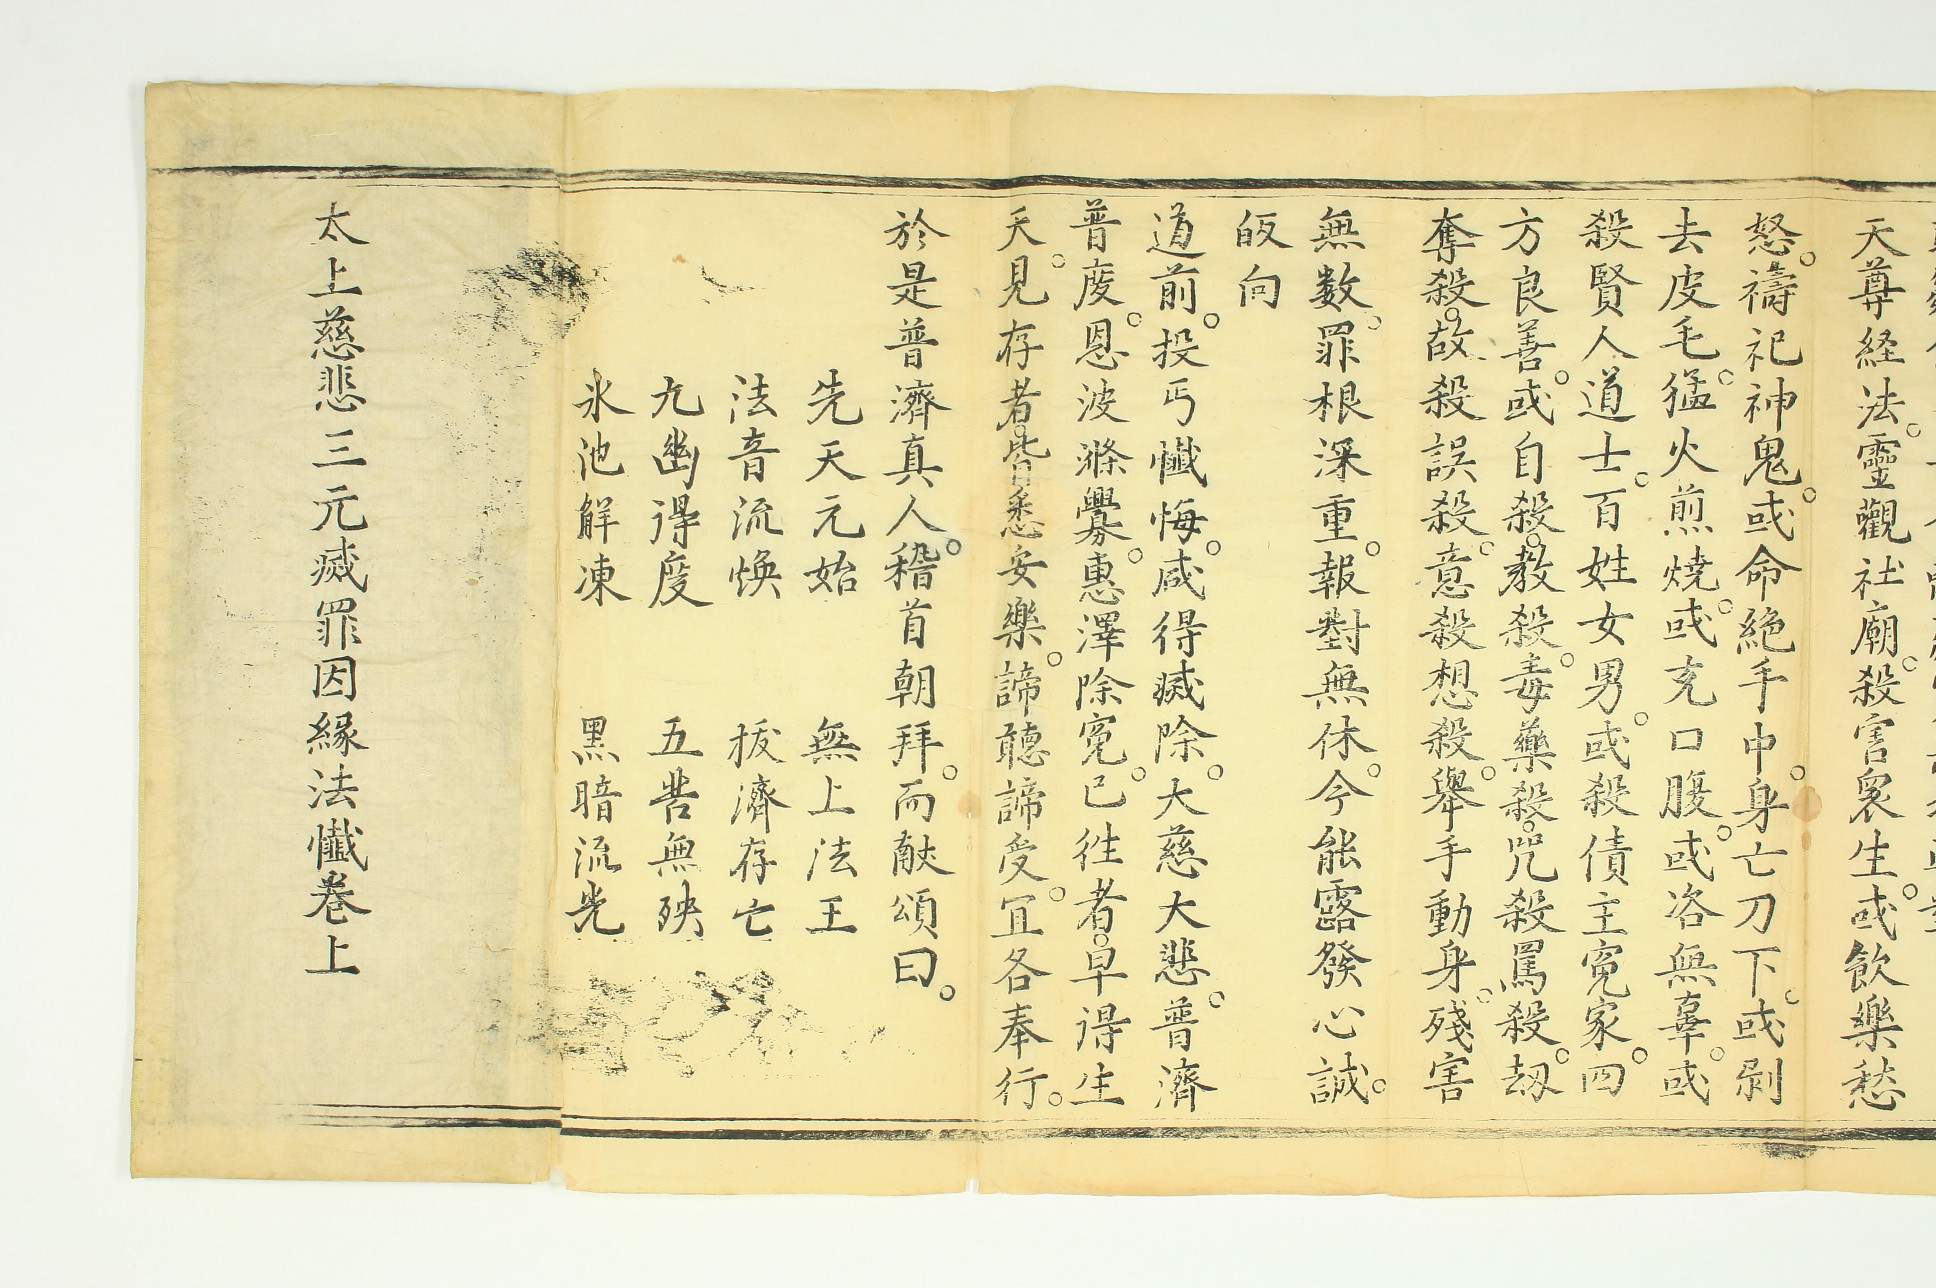 天尊経法。靈觀社廟。殺害衆生。或飲樂愁
怒。禱祀神鬼。或命絕手中。身亡刀下。或剥
去皮毛。猛火煎燒。或充口腹。或咨無辜。或
殺賢人道士。百姓女男。或殺債主寃家。四
方良善。或自殺。教殺。毒藥殺。咒殺罵殺。劫
奪殺。故殺誤殺。意殺想殺。舉手動身。殘害
無数。罪根深重。報對無休。今能露發心誠。
皈向
道前。投丐懺悔。咸得滅除。大慈大悲。普濟
普度。恩波滌釁。惠澤除寃。已徃者。早得生
天。見存者。皆悉安樂。諦聽諦受。宜各奉行。
於是普濟真人。稽首朝拜。而献頌曰。
先天元始 無上法王
法音流煥 拔濟存亡
九幽得度 五苦無殃
氷池解凍 黑暗流光
太上慈悲三元滅罪因緣法懺卷上